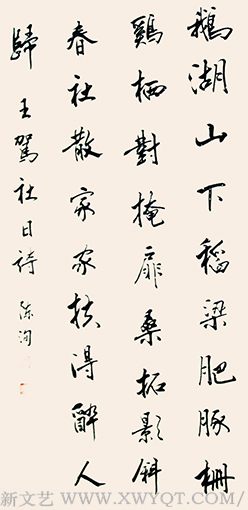 鵝湖山下稻粱肥豚柵
鷄栖對掩扉桑柘影斜
春社散家家扶得醉人
歸 王駕社日詩 陈洵
新文艺 / WWW.XWYQT.COM/